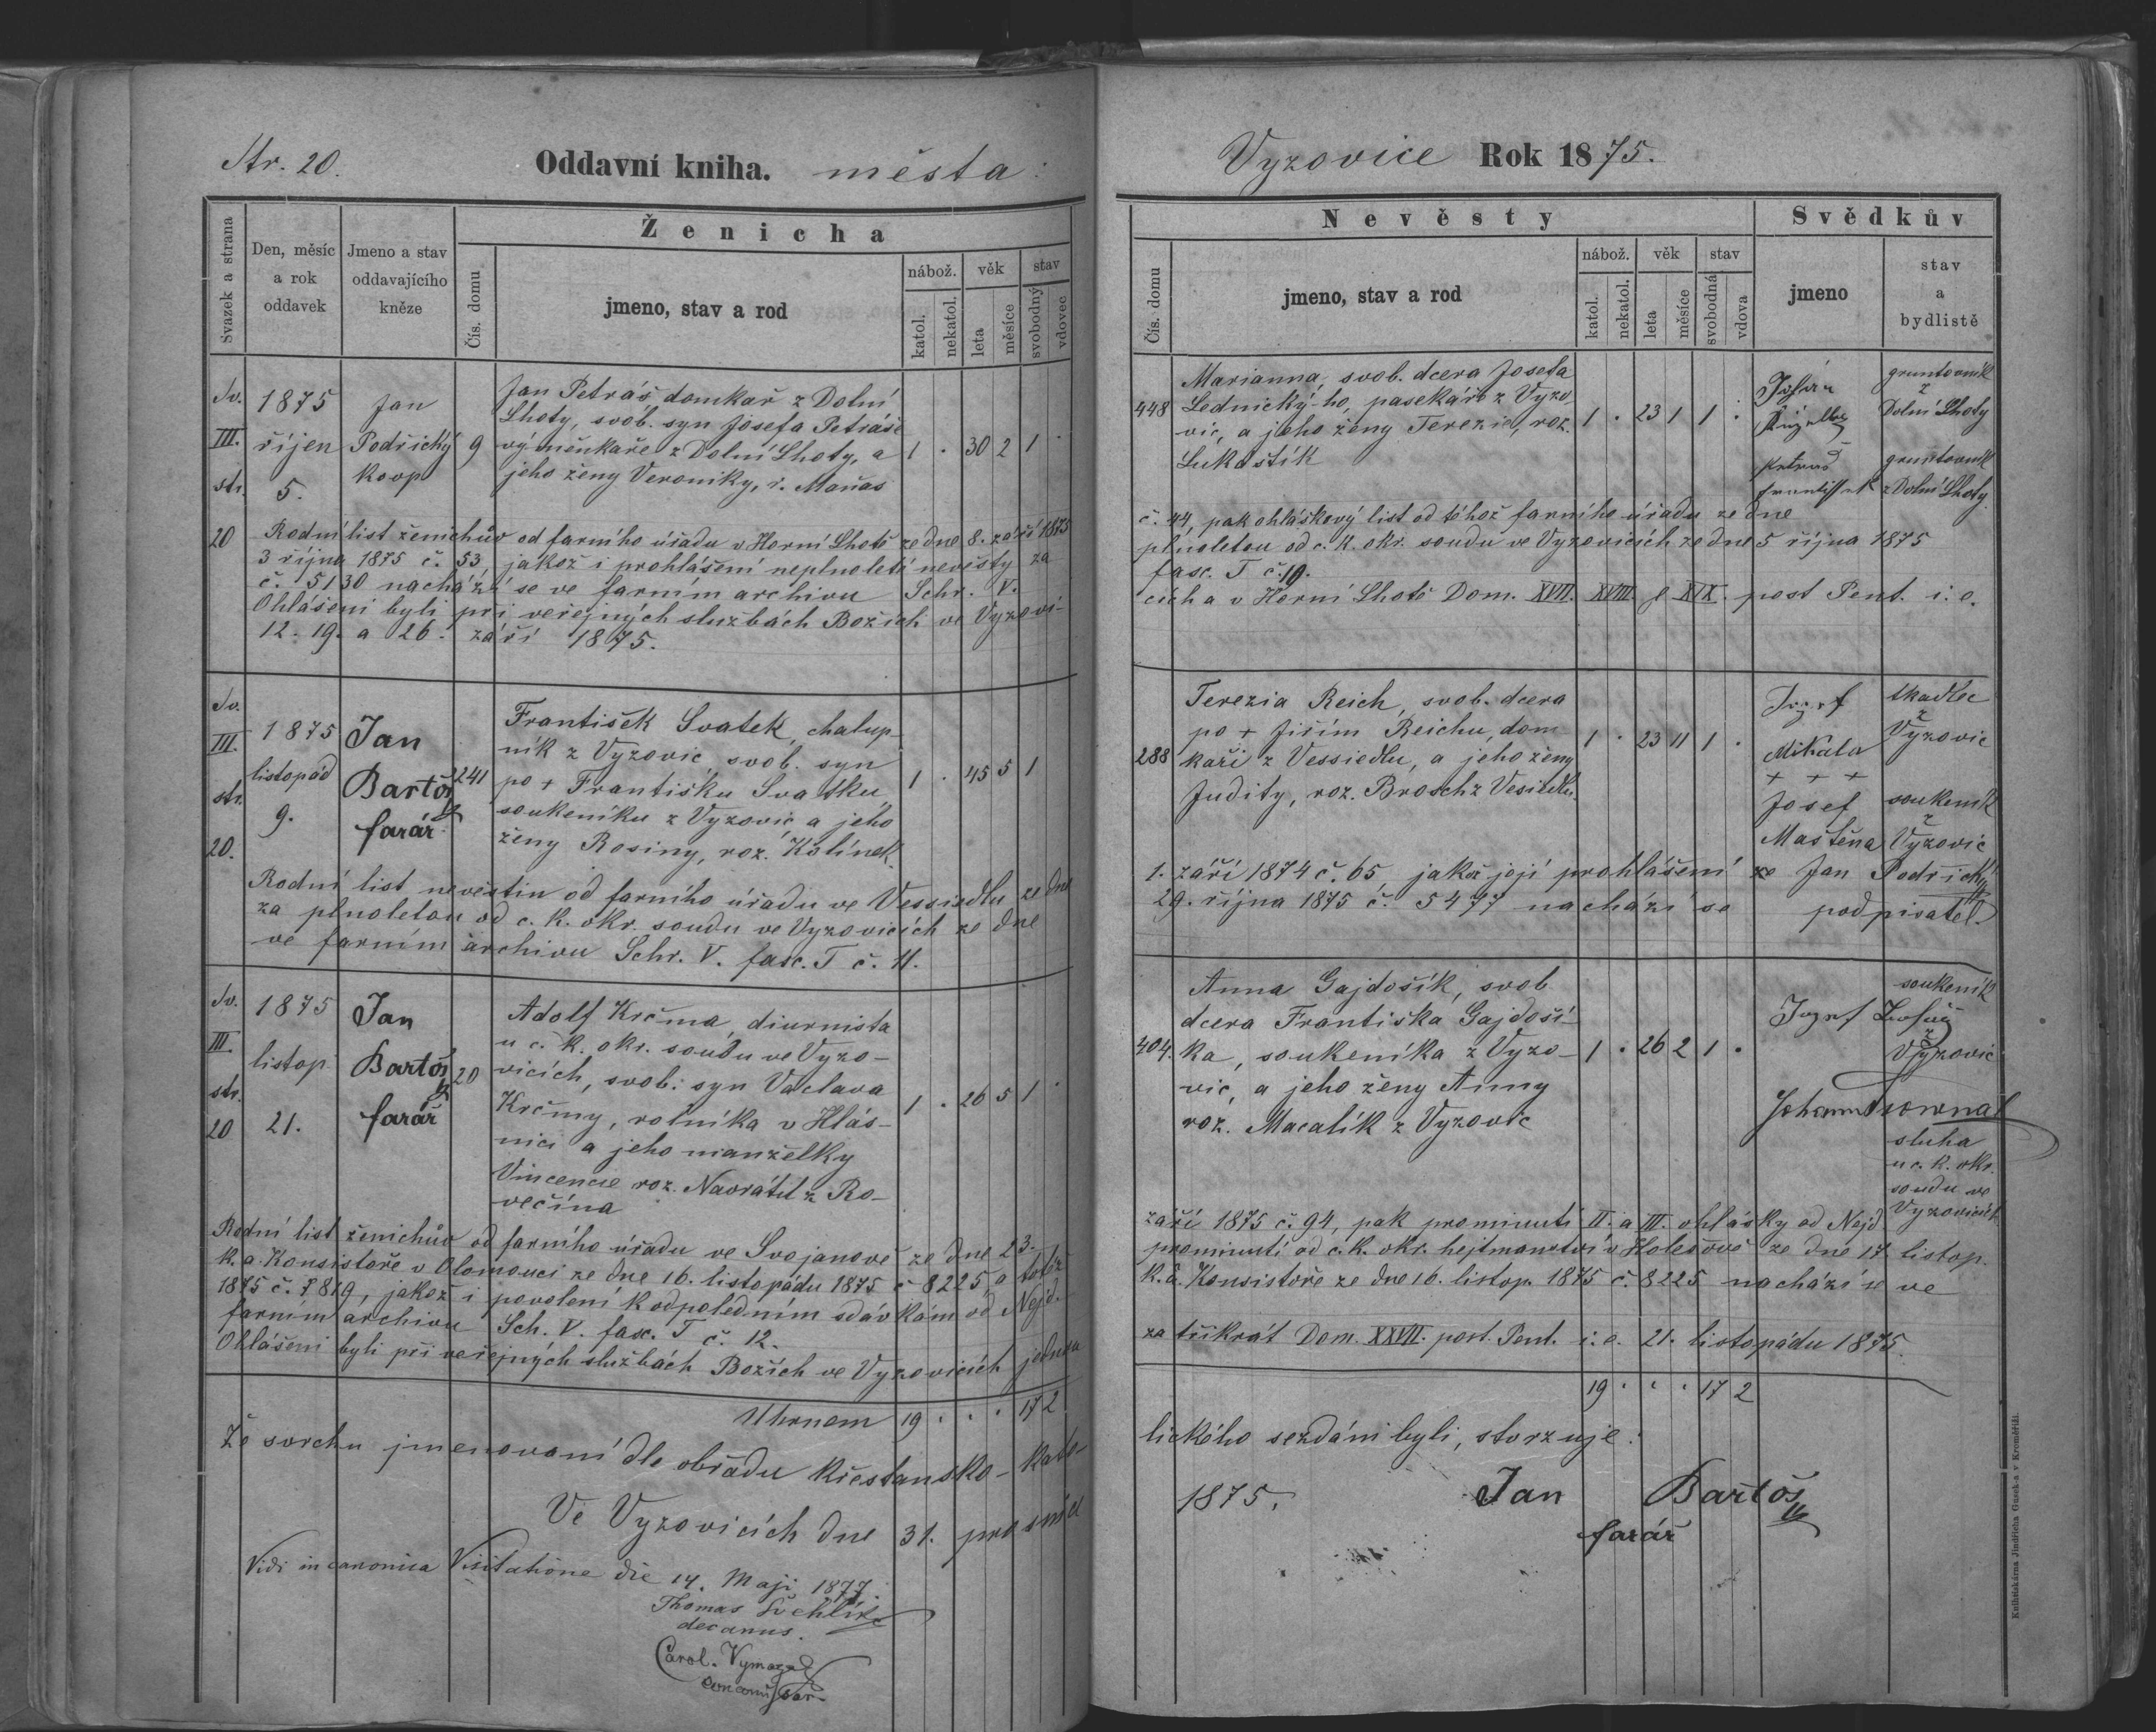 Str. 20.
Oddavní kniha. města:
Svazek a strana
Den, měsíc
a rok
oddavek
Jmeno a stav
oddavajícího
kněze
Ženicha
Čís. domu
jmeno, stav a rod
nábož.
věk
stav
katol.
nekatol.
leta
měsíce
svobodný
vdovec
Sv.
III.
str.
20
1875
říjen
5.
Jan
Podřický
koop
9
Jan Petráš domkař z Dolní
Lhoty, svob. syn Josefa Petráše
výměnkaře z Dolní Lhoty, a
jeho ženy Veroniky, r. Maňas
1 . 30 2 1 .
Rodní list ženichův od farního úřadu v Horní Lhotě ze dne 8. září 1875
3 října 1875 č. 53, jakož i prohlášení neplnoleté nevěsty za
č. 5130 nachází se ve farním archivu Schr. V.
Ohlášeni byli při veřejných službách Božích ve Vyzovi-
12. 19. a 26. září 1875.
Sv.
III.
str.
20.
1875
listopad
9.
Jan
Bartoš
farář
241
František Svatek, chalup-
ník z Vyzovic, svob. syn
po + Františku Svatku,
soukeníku z Vyzovic a jeho
ženy Rosiny, roz. Kolínek.
1 . 45 5 1
Rodní list nevěstin od farního úřadu ve Vessiedlu ze dne
za plnoletou od c. k. okr. soudu ve Vyzovicích ze dne
ve farním archivu Schr. V. fasc. T č. 11.
Sv.
III.
str.
20
1875
listop
21.
Jan
Bartoš
farář
20
Adolf Krčma, diurnista
u c. k. okr. soudu ve Vyzo-
vicích, svob. syn Vaclava
Krčmy, rolníka v Hlás-
nici a jeho manželky
Vincencie roz. Navrátil z Ro-
večína
1 . 26 5 1 .
Rodní list ženichův od farního úřadu ve Svojanově ze dne 23.
k. a. Konsistoře v Olomouci ze dne 16. listopádu 1875 č 8225, a totéž
1875 č. 7819, jakož i povolení k odpoledním sdávkám od Nejd.
farním archivu Sch. V. fasc. T č. 12.
Ohlášeni byli při veřejných službách Božích ve Vyzovicích jednou
Uhrnem 19 . . . 17 2
Že svrchu jmenovaní dle obřadu křestansko-kato-
Ve Vyzovicích dne 31. prosince
Vidi in canonica Visitatione die 14. Maji 1877.
Thomas
decanus.
Carol. Vymazal
Vyzovice Rok 1875.
Nevěsty
Svědkův
Čís. domu
jmeno, stav a rod
nábož.
věk
stav
katol.
nekatol.
leta
měsíce
svobodná
vdova
jmeno
stav
a
bydliště
448
Marianna, svob. dcera Josefa
Lednický-ho, pasekáře z Vyzo
vic, a jeho ženy Terezie, roz.
Lukaštík
1 . 23 1 1 .
Johan
gruntovník
z
Dolní Lhoty
Petraš
Frantissek
gruntovník
z Dolní Lhoty
č. 44, pak ohláškový list od téhož farního úřadu ze dne
plnoletou od c. k. okr. soudu ve Vyzovicích ze dne 5 října 1875
fasc. T č. 10.
cích a v Horní Lhotě Dom. XVII. XVIII. e XIX. post Pent. i. e.
288
Terezia Reich, svob. dcera
po + Jiřím Reichu, dom
kaři z Vessiedlu, a jeho ženy
Judity, roz. Brosch z Vesiedlu.
1 . 23 11 1 .
Jozef
Mikala
+ + +
tkadlec
z
Vyzovic
Josef
Maštěna
soukeník
z
Vyzovic
1. září 1874 č. 65, jakož její prohlášení ze Jan Podřický
29. října 1875 č. 5477 nachází se podpisatel.
404.
Anna Gajdošík, svob
dcera Františka Gajdoší-
ka, soukeníka z Vyzo-
vic, a jeho ženy Anny
roz. Macalík z Vyzovic
1 . 26 2 1 .
Jozef
soukeník
z
Vyzovic
Johann
sluha
u c. k. okr.
soudu ve
Vyzovicích
září 1875 č. 94, pak prominutí II. a III. ohlásky od Nejd
prominutí od c. k. okr. hejtmanství v Holešově ze dne 17. listop.
k. a. Konsistoře ze dne 16. listop. 1875 č. 8225 nachází se ve
za třikrát Dom. XXVII. post. Pent. i. e. 21. listopádu 1875.
19 . . . 17 2
lického sezdáni byli, stvrzuje:
1875.
Jan Bartoš
farář
Knihtiskárna Jindřicha Gusek-a v Kroměříži.